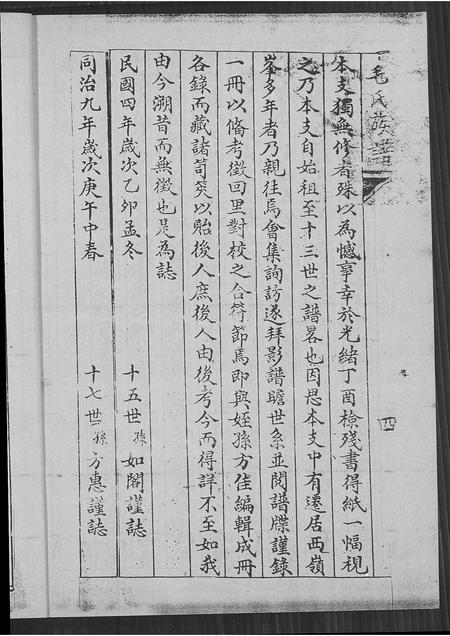 毛氏族譜
四
本支獨無修者殊以為憾享幸於光緒丁酉檢殘書得紙一幅視
之乃本支自始祖至十三世之譜畧也因思本支中有遷居西嶺
峯多年者乃親往焉會集詢訪遂拜影譜瞻世系並閱譜牒謹錄
一冊以俻考徵回里對校之合符節焉即與姪孫方佳編輯成冊
各錄而藏諸笥笅以貽後人庶後人由後考今而得詳不至如我
由今溯昔而無徵也是為誌
民國四年歲次乙卯孟冬 十五世孫如閣謹誌
同治九年歲次庚午中春 十七世孫方惠謹誌